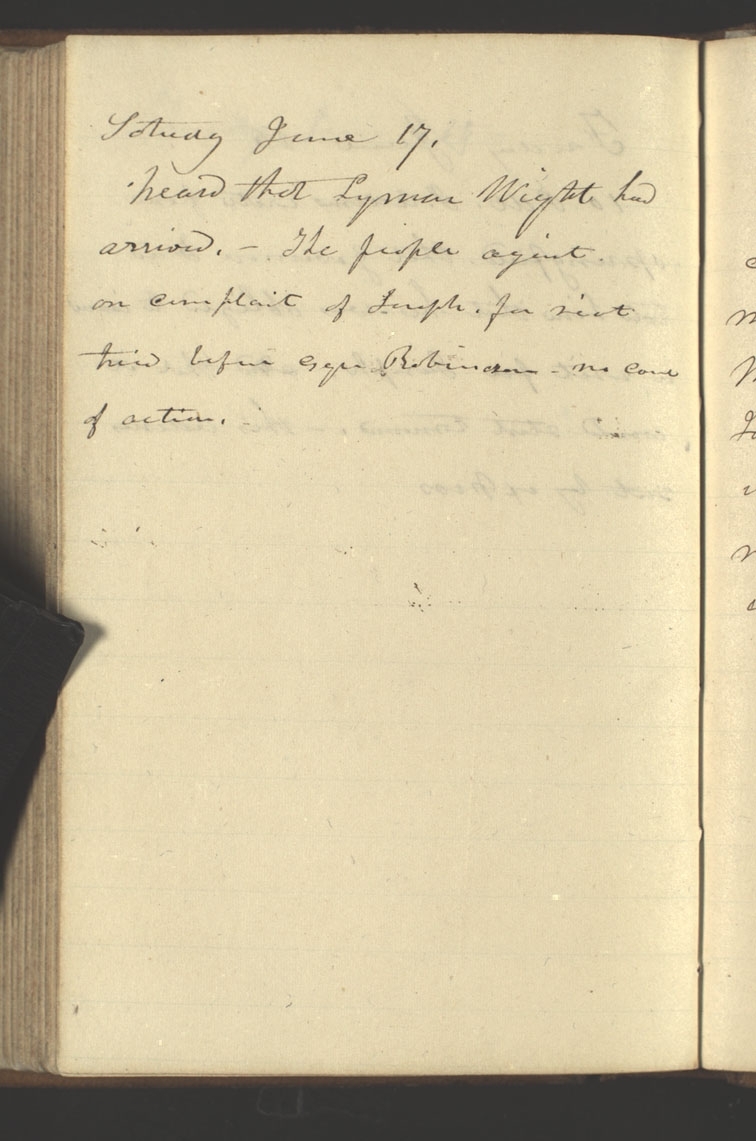 Saturday June 17.
heard that Lyman Wight had
arrived. – The people against.
on complaint of Joseph. for riot
tried before esqr Robinson – no cause
of action.